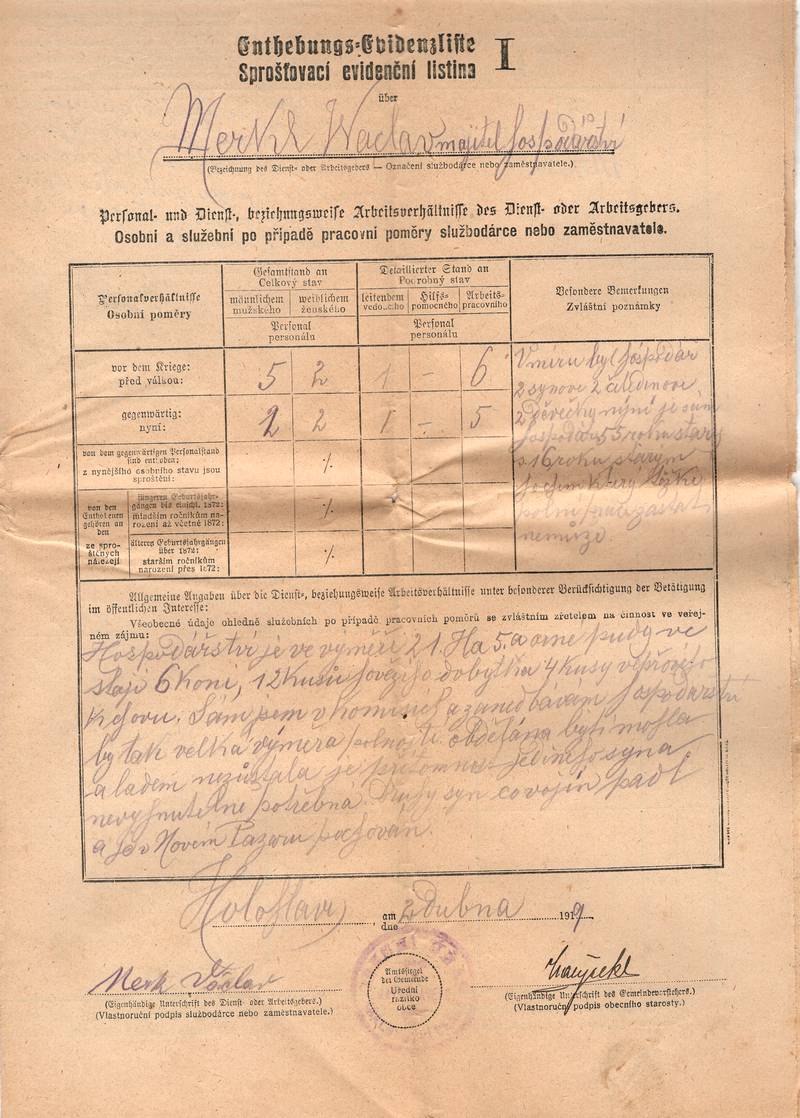 Enthebungs-Evidenzliste I
Sprošťovací evidenční listina
über
Merkl Waclav majitel hospodářství
(Bezeichnung des Dienst- oder Arbeitsgebers — Označení službodárce nebo zaměstnavatele.)
Personal- und Dienst-, beziehungsweise Arbeitsverhältnisse des Dienst- oder Arbeitsgebers.
Osobní a služební po případě pracovní poměry službodárce nebo zaměstnavatele.
Personalverhältnisse
Osobní poměry
Gesamtstand an
Celkový stav
männlichem
mužského
weiblichem
ženského
Personal
personálu
Detaillierter Stand an
Podrobný stav
leitendem
vedoucího
Hilfs-
pomocného
Arbeits-
pracovního
Personal
personálu
Besondere Bemerkungen
Zvláštní poznámky
vor dem Kriege:
před válkou:
5 2 1 – 6
gegenwärtig:
nyní:
2 2 1 – 5
von dem gegenwärtigen Personalstand
sind enthoben:
z nynějšího osobního stavu jsou
sproštěni:
٪
von den
Enthobenen
gehören an
den
ze spro-
štěných
náležejí
jüngeren Geburtsjahr-
gängen bis einschl. 1872:
mladším ročníkům na-
rození až včetně 1872:
٪
älteren Geburtsjahrgängen
über 1872:
starším ročníkům
narození přes 1872:
٪
V míru byl hospodář
2 synove 2 čeledinove
2 děvečky nýní je sám
hospodář 55 roku starý
s 16 roku starým
hochem který těžké
polní práce zastati
nemůže.
Allgemeine Angaben über die Dienst-, beziehungsweise Arbeitsverhältnisse unter besonderer Berücksichtigung der Betätigung
im öffentlichen Interesse:
Všeobecné údaje ohledně služebních po případě pracovních poměrů se zvláštním zřetelem na činnost ve veřej-
ném zájmu:
Hospodářství je ve výměře 21. Ha 5. a orne pudy ve
staji 6 koní, 12 kusů hovězího dobytka 4 kusy vepřového
k chovu. Sám jsem v komisích a zanedbávám hospodářství
by tak velká výměra polností obdělána byti mohla
a ladem nezůstala je přítomnost jediného syna
nevyhnutelne potřebna. Druhý syn co vojín padl
a je v Novém Pazaru pochován.
am
dne
2 Dubna 191
Merk Václav
(Eigenhändige Unterschrift des Dienst- oder Arbeitsgebers.)
(Vlastnoruční podpis službodárce nebo zaměstnavatele.)
Amtssiegel
der Gemeinde
Úřední
razítko
obce
(Eigenhändige Unterschrift des Gemeindevorstehers.)
(Vlastnoruční podpis obecního starosty.)